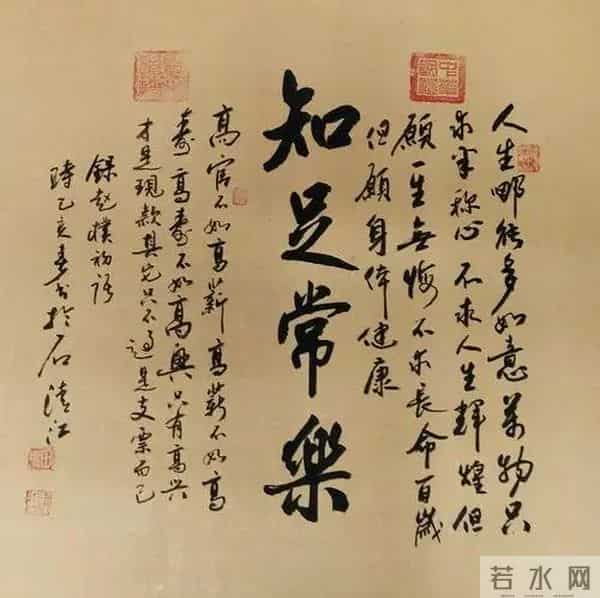 人生哪能多如意萬物只
求半称心不求人生輝煌但
願一生無悔不求長命百歲
但願身体健康
知足常樂
高官不如高薪高薪不如高
壽高壽不如高興只有高兴
才是現款其它只不过是支票而已
録赵樸初語
時乙亥春书於石江
若水网